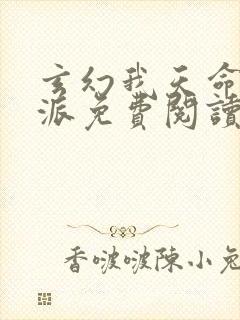 玄幻我天命
派免費閱讀
香啵啵陳小兔